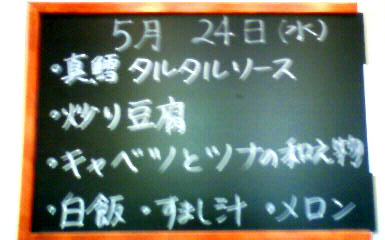 5月 24日(水)
・真鱈 タルタルソース
・炒り豆腐
・キャベツとツナの和え物
・白飯 ・すまし汁 ・メロン